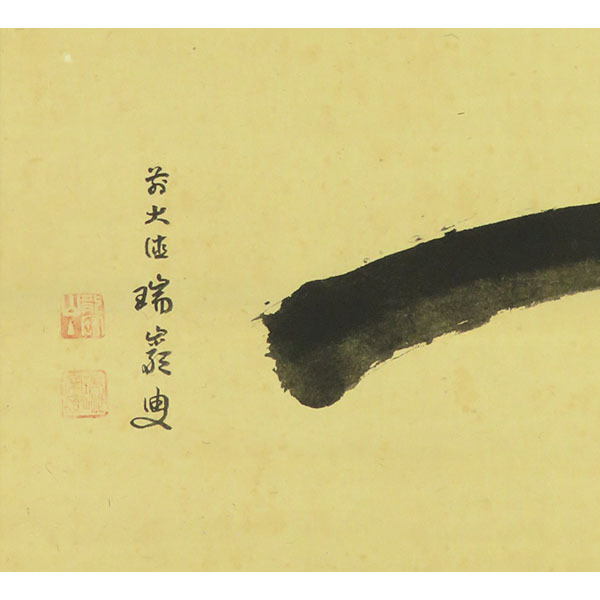 前大徳瑞巖叟